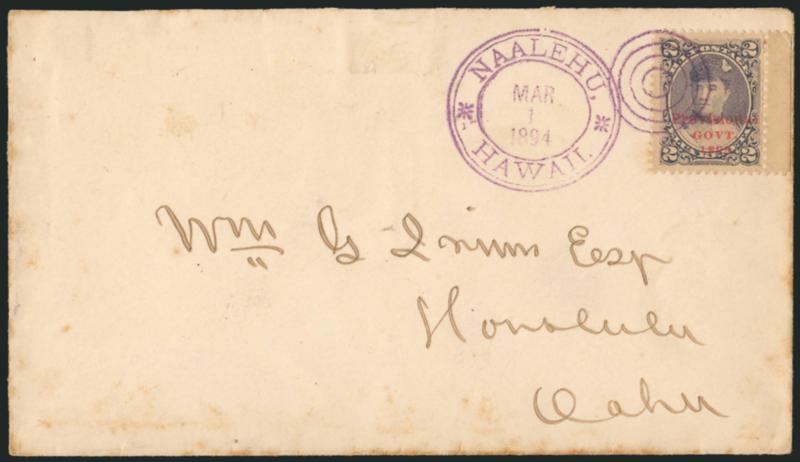 NAALEHU,
HAWAII.
MAR
1
1894
2 2
Provisional
GOVT
1893
2 2
Wm G Irwin Esqr
Honolulu
Oahu